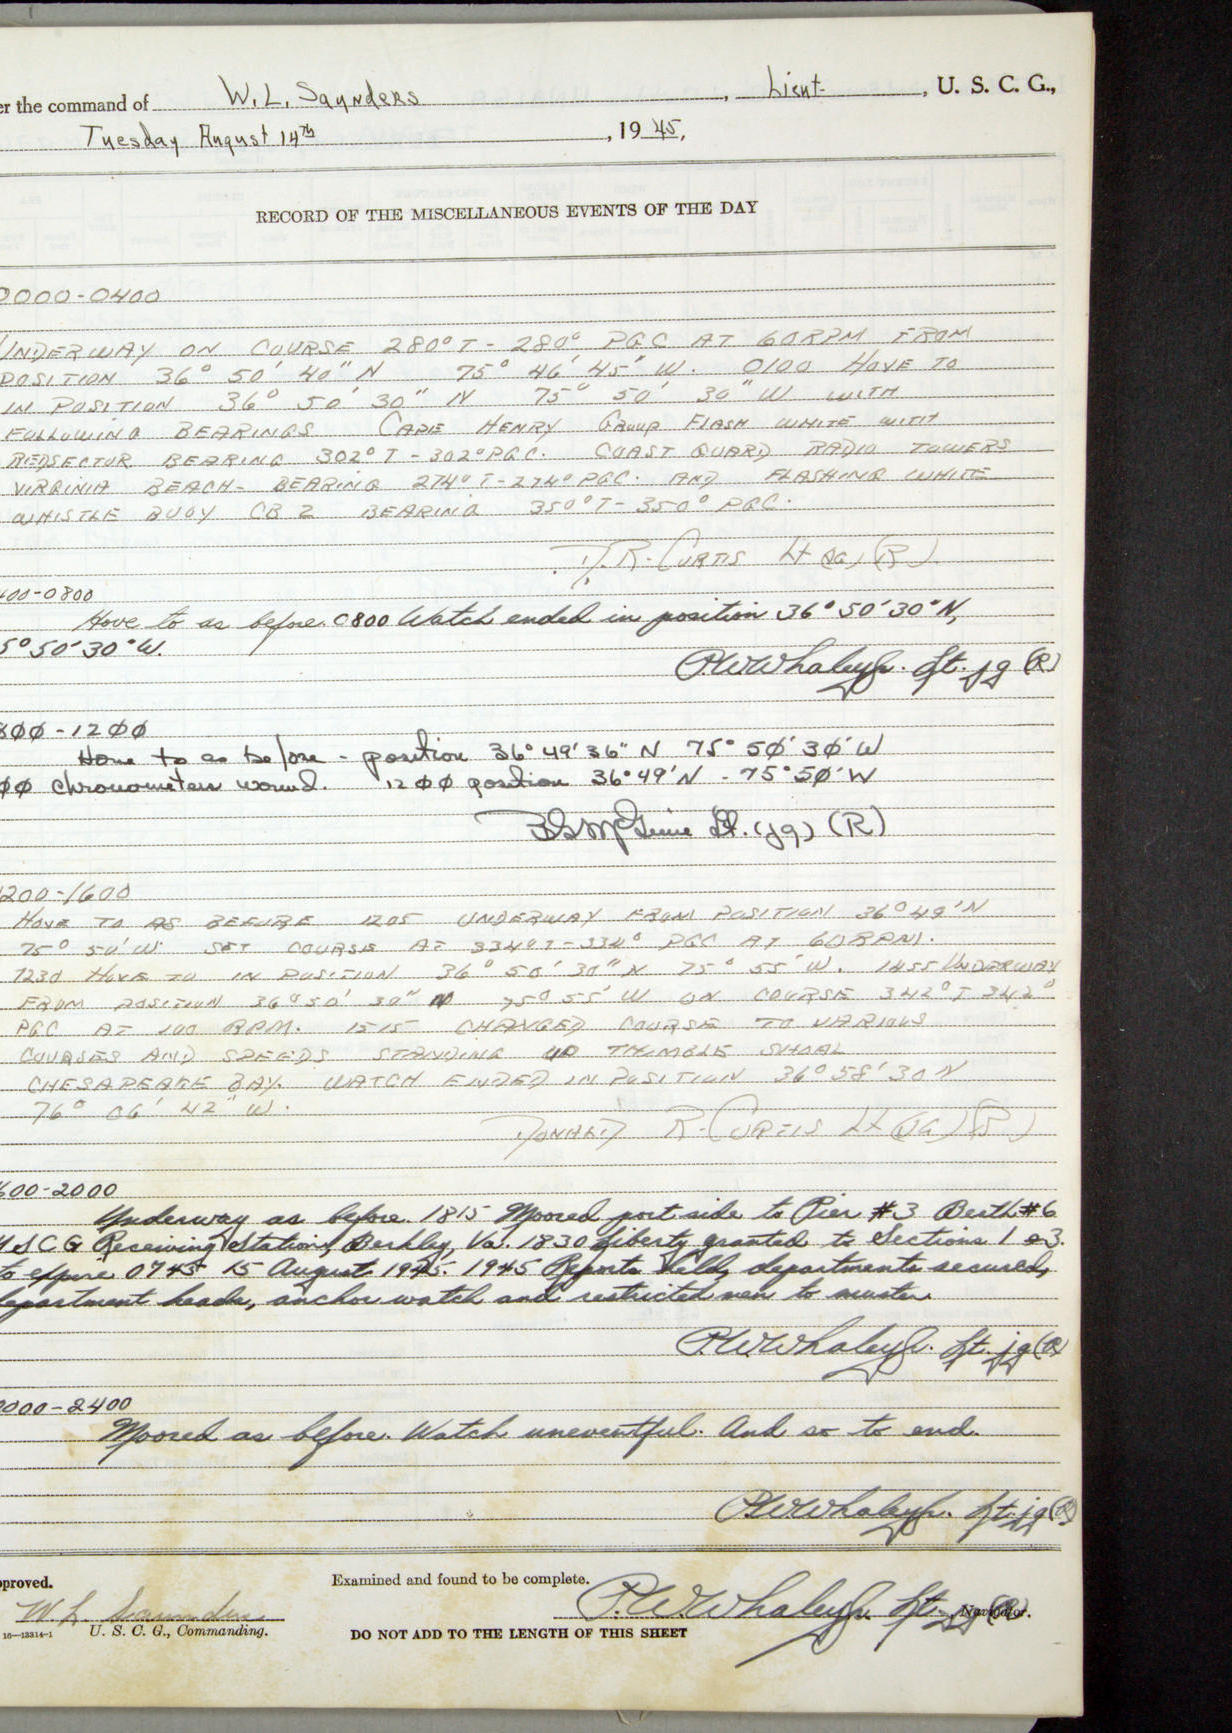 er the command of W. L. Saunders, Lieut., U. S. C. G.,
Tuesday August 14th, 1945,
RECORD OF THE MISCELLANEOUS EVENTS OF THE DAY
0000-0400
UNDERWAY ON COURSE 280° T - 280° PGC AT 60RPM FROM
POSITION 36° 50' 40" N 75° 46' 45" W. 0100 HOVE TO
IN POSITION 36° 50' 30" N 75° 50' 30" W WITH
FOLLOWING BEARINGS CAPE HENRY GROUP FLASH WHITE WITH
REDSECTOR BEARING 302° T - 302° PGC. COAST GUARD RADIO TOWERS
VIRGINIA BEACH - BEARING 274° T - 274° PGC. AND FLASHING WHITE
WHISTLE BUOY CB 2 BEARING 350° T - 350° PGC.
D. R. CURTIS Lt (JG) (R)
400-0800
Hove to as before. 0800 Watch ended in position 36° 50' 30" N,
5° 50' 30" W.
P.W. Whaley Jr. Lt. jg (R)
8ØØ-12ØØ
Hove to as before - position 36° 49' 36" N 75° 5Ø' 3Ø" W
ØØ chronometers wound. 12ØØ position 36° 49' N - 75° 5Ø' W
Lt. (jg) (R)
1200-1600
HOVE TO AS BEFORE 1205 UNDERWAY FROM POSITION 36° 49' N
75° 50' W. SET COURSE AT 334° T - 334° PGC AT 60RPM.
1230 HOVE TO IN POSITION 36° 50' 30" N 75° 55' W. 1455 UNDERWAY
FROM POSITION 36° 50' 30" N 75° 55' W ON COURSE 342° T 342°
PGC AT 100 RPM. 1515 CHANGED COURSE TO VARIOUS
COURSES AND SPEEDS STANDING UP THIMBLE SHOAL
CHESAPEAKE BAY. WATCH ENDED IN POSITION 36° 58' 30 N
76° 06' 42" W.
DONALD R. CURTIS Lt (JG) (R)
600-2000
Underway as before. 1815 Moored port side to Pier #3 Berth #6
USCG Receiving Station, Berkley, Va. 1830 Liberty granted to Sections 1 & 3.
to expire 0745 15 August 1945. 1945 Reports held, departments secured,
department heads, anchor watch and restricted men to muster.
P.W. Whaley Jr. Lt. jg (R)
2000-2400
Moored as before. Watch uneventful. And so to end.
P.W. Whaley Jr. Lt. jg (R)
pproved.
Examined and found to be complete.
W. L. Saunders
P.W. Whaley Jr. Lt. jg (R) Navigator.
16—13314-1 U. S. C. G., Commanding.
DO NOT ADD TO THE LENGTH OF THIS SHEET